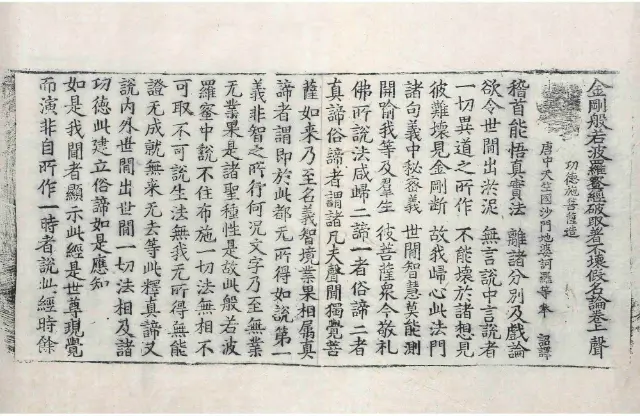 金剛般若波羅蜜經破取著不壞假名論卷上 聲
功德施菩薩造
唐中天竺國沙門地婆訶羅等奉 詔譯
稽首能悟真實法 離諸分別及戲論
欲令世間出淤泥 無言說中言說者
一切異道之所作 不能壞於諸想見
彼難壞見金剛斷 故我歸心此法門
諸句義中秘密義 世間智慧莫能測
開喻我等及羣生 彼菩薩衆今敬礼
佛所說法咸歸二諦一者俗諦二者
真諦俗諦者謂諸凡夫聲聞獨覺菩
薩如来乃至名義智境業果相属真
諦者謂即於此都无所得如說第一
義非智之所行何況文字乃至無業
无業果是諸聖種性是故此般若波
羅蜜中說不住布施一切法無相不
可取不可說生法無我无所得無能
證无成就無来无去等此釋真諦又
說内外世間出世間一切法相及諸
功德此建立俗諦如是應知
如是我聞者顯示此經是世尊現覺
而演非自所作一時者說此經時餘